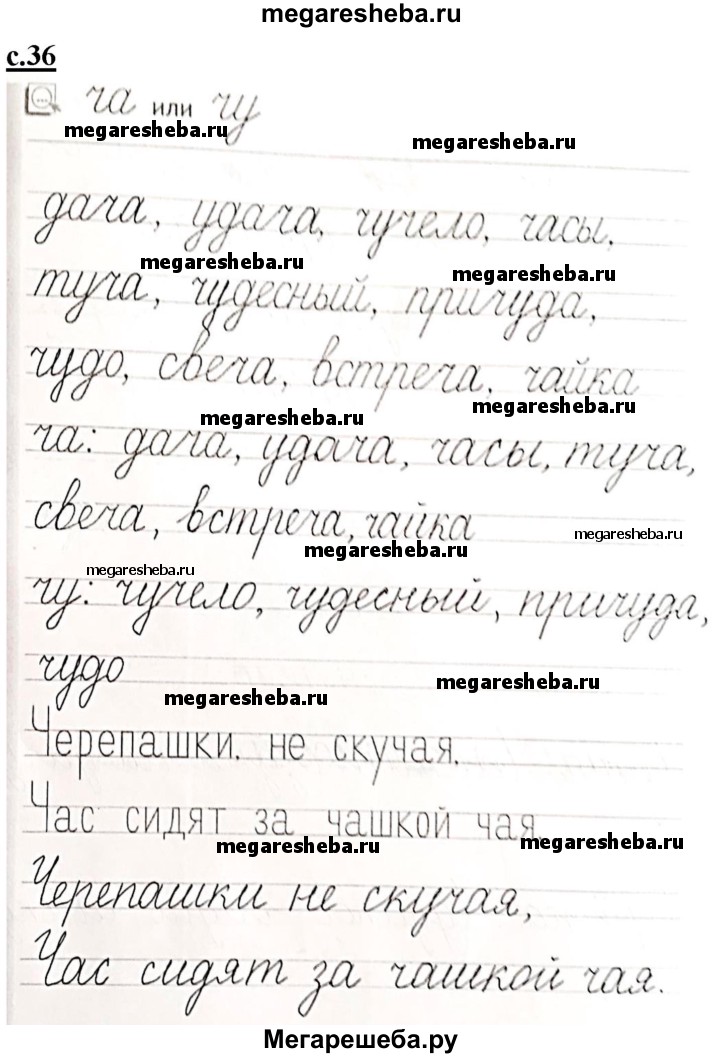 megaresheba.ru
с.36
ча или чу
megaresheba.ru
megaresheba.ru
дача, удача, чучело, часы,
megaresheba.ru
megaresheba.ru
туча, чудесный, причуда,
чудо, свеча, встреча, чайка
megaresheba.ru
megaresheba.ru
ча: дача, удача, часы, туча,
свеча, встреча, чайка
megaresheba.ru
megaresheba.ru
megaresheba.ru
чу: чучело, чудесный, причуда,
чудо
megaresheba.ru
megaresheba.ru
Черепашки, не скучая,
Час сидят за чашкой чая.
megaresheba.ru
megaresheba.ru
Черепашки не скучая,
Час сидят за чашкой чая.
Мегарешеба.ру